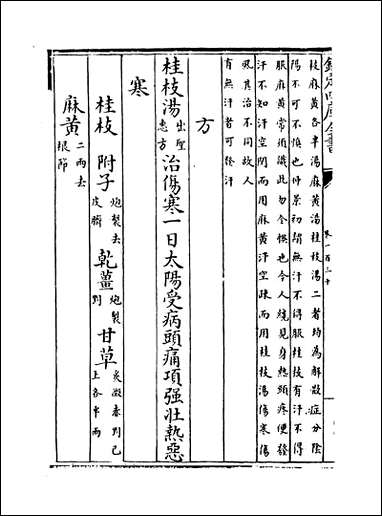 欽定四庫全書
卷一百三十
枝麻黄各半湯麻黄湯桂枝湯二者均為解散症分陰
陽不可不慎也仲景初頭無汗不得服桂枝有汗不得
服麻黄常須識此勿令悞也今人纔見身熱頭疼便發
汗不知汗空閉而用麻黄汗空疎而用桂枝湯傷寒傷
風其治不同故人
有無汗者可發汗
方
桂枝湯出聖惠方治傷寒一日太陽受病頭痛項强壯熱惡
寒
桂枝 附子炮製去皮臍 乾薑炮製剉 甘草炙微赤剉已上各半兩
麻黄二兩去根節